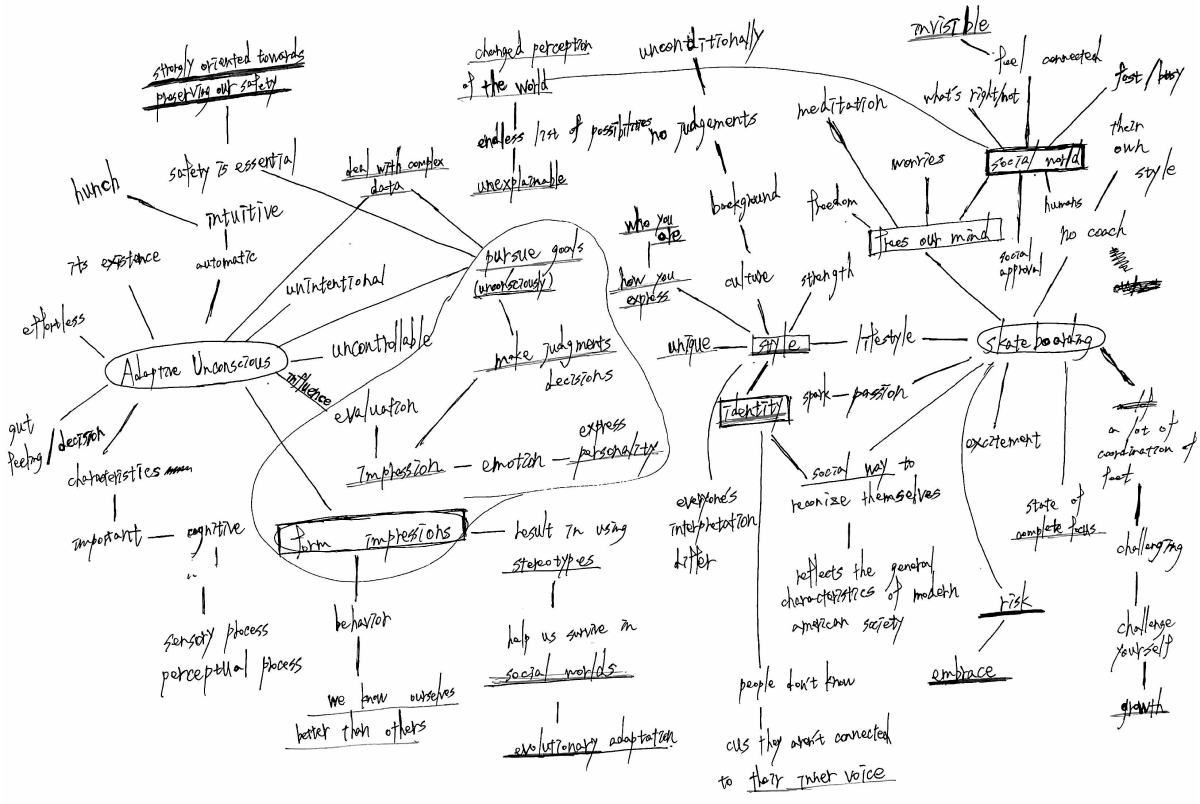 strongly oriented towards
preserving our safety
safety is essential
hunch
intuitive
automatic
its existance
effortless
unintentional
uncontrollable
Adaptive Unconscious
influence
gut
feeling/decision
characteristics
important
cognitive
sensory process
perceptual process
deal with complex
data
changed perception
of the world
endless list of possibilities
unexplainable
pursue goals
(unconsciously)
make judgments
decisions
evaluation
impression
emotion
express
personality
form impressions
behavior
we know ourselves
better than others
result in using
stereotypes
help us survive in
social worlds
evolutionary adaptation
unconditionally
no judgements
background
culture
strength
who you
are
how you
express
unique
style
lifestyle
identity
spark
passion
everyone's
interpretation
differ
social way to
reconize themselves
reflects the general
characteristics of modern
american society
people don't know
cus they aren't connected
to their inner voice
invisible
feel connected
what's right/not
fast/busy
meditation
worries
freedom
social world
frees our mind
social
approval
humans
their
own
style
no coach
skateboarding
excitement
state of
complete focus
risk
embrace
a lot of
coordination of
feet
challenging
challenge
yourself
growth